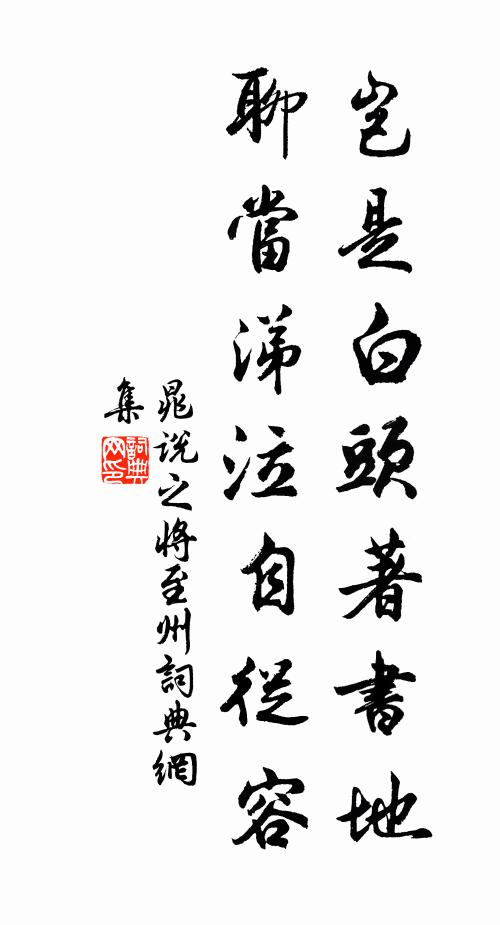 豈是白頭著書地
聊當涕泣自從容
晁說之將至州詞典網
集
詞典
网印